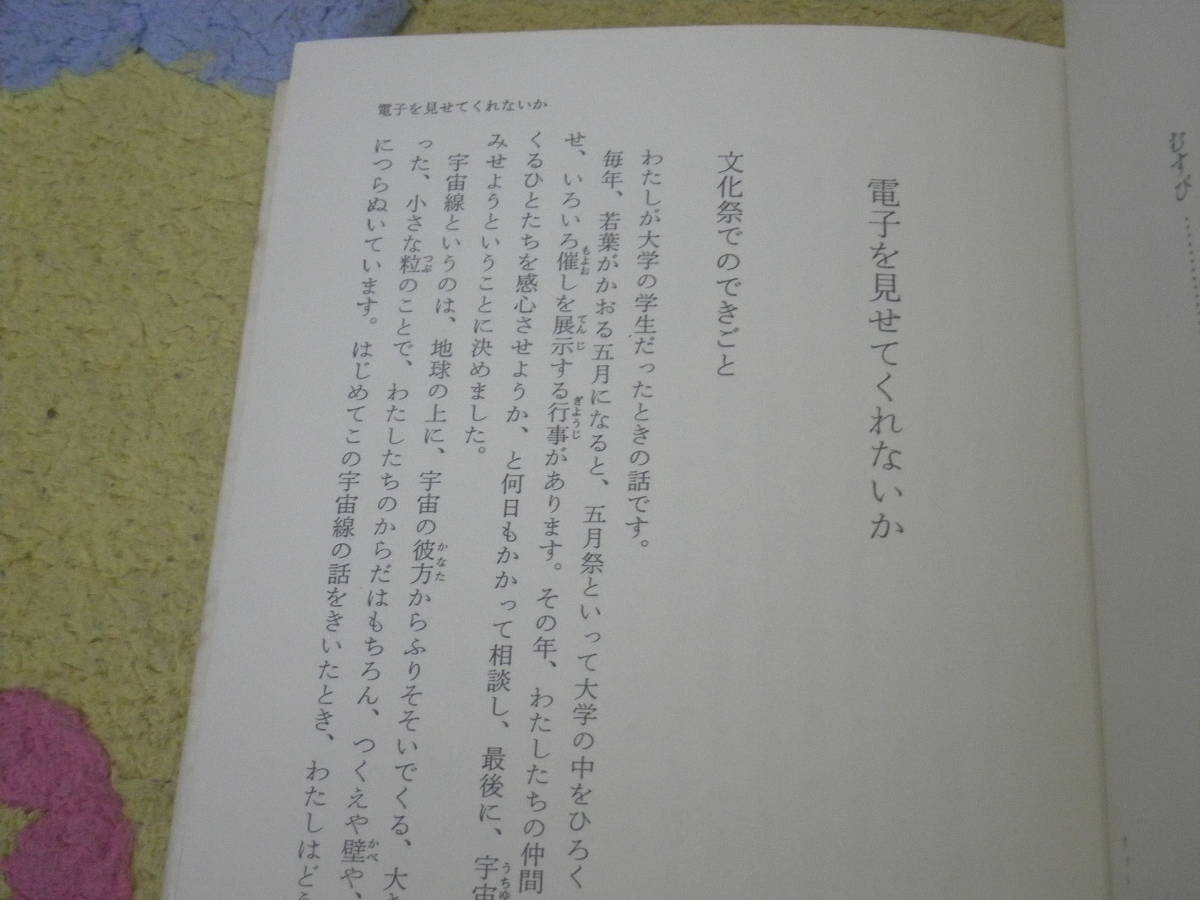 むすび
電子を見せてくれないか
文化祭でのできごと
わたしが大学の学生だったときの話です。
毎年、若葉がかおる五月になると、五月祭といって大学の中をひろく
せ、いろいろ催しを展示する行事があります。その年、わたしたちの仲間
くるひとたちを感心させようか、と何日もかかって相談し、最後に、宇宙
みせようということに決めました。
宇宙線というのは、地球の上に、宇宙の彼方からふりそそいでくる、大
った、小さな粒のことで、わたしたちのからだはもちろん、つくえや壁や、
につらぬいています。はじめてこの宇宙線の話をきいたとき、わたしはど
電子を見せてくれないか